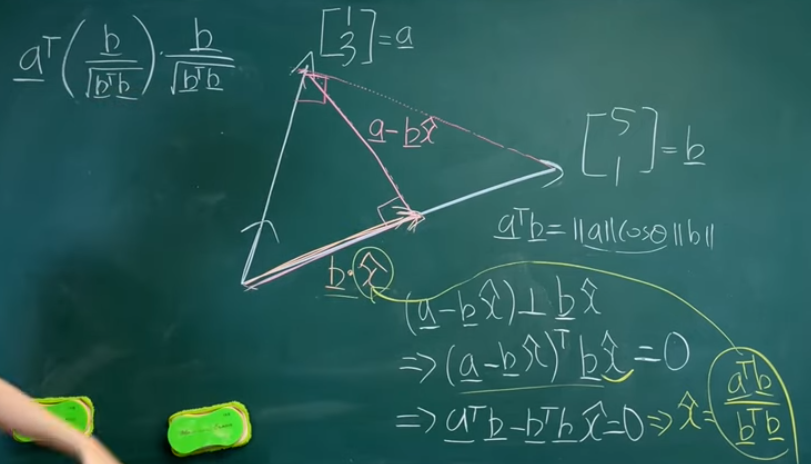 a^T (b / √(b^T b)) · b / √(b^T b)
[1 3] = a
a - b x̂
[5 1] = b
a^T b = ||a|| cosθ ||b||
b · x̂
(a - b x̂) ⊥ b x̂
⇒ (a - b x̂)^T b x̂ = 0
⇒ a^T b - b^T b x̂ = 0 ⇒ x̂ = a^T b / b^T b